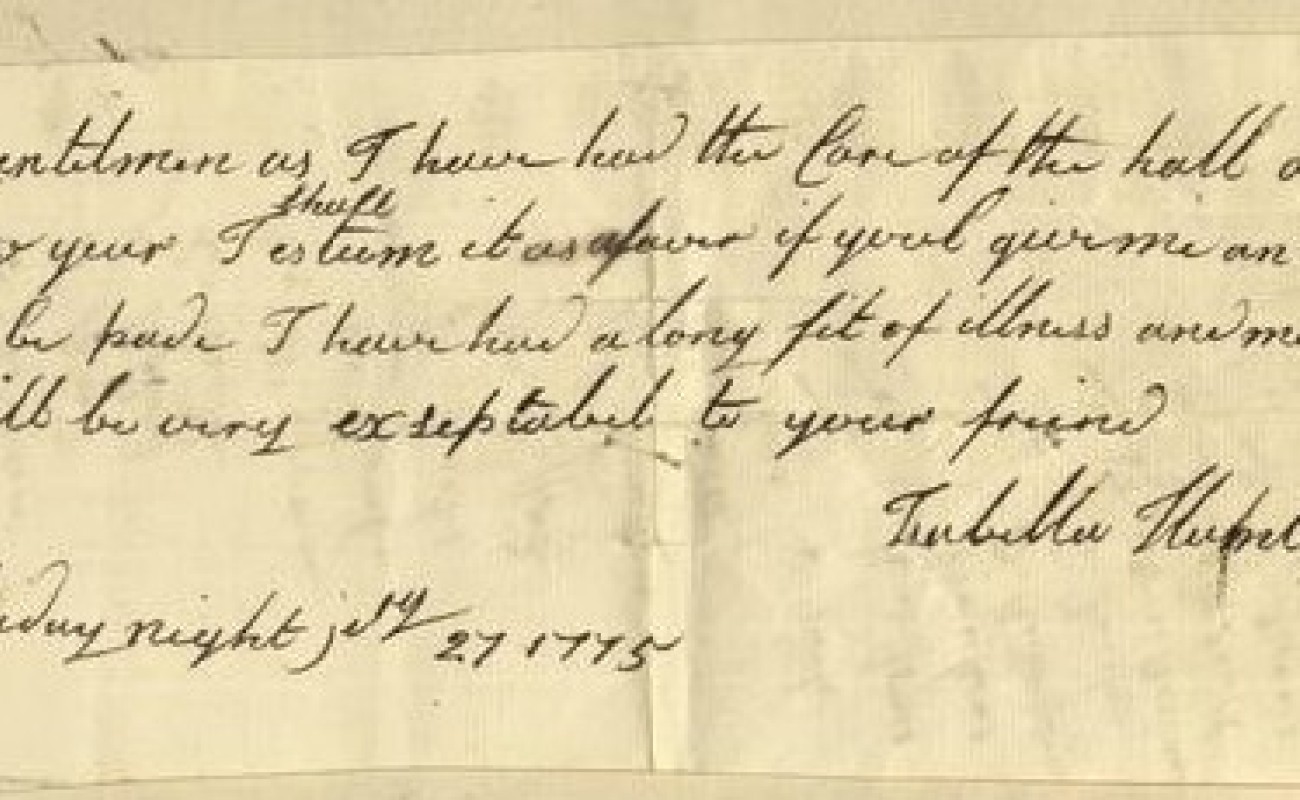 entilmen as I have had the Care of the hall a
shall
year I esteem it as a favor if youl give me an
be pade I have had a long fit of illness and m
ill be very exseptabel to your friend
Isabella
day night july 27 1775